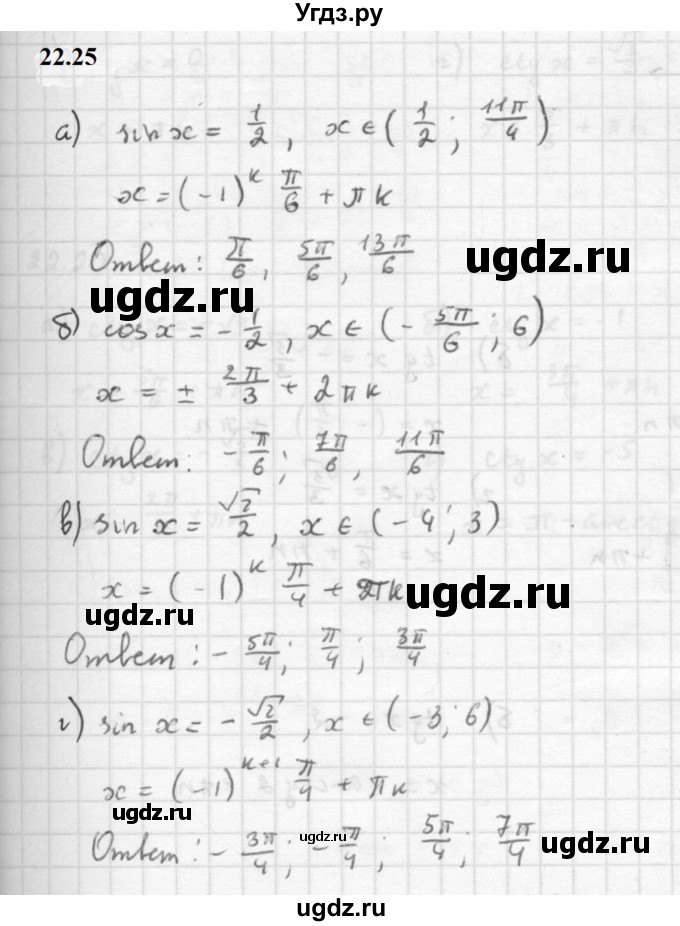 Угдз.ру
22.25
а) sin x = 1/2, x ∈ (1/2; 11π/4)
x = (-1)^k π/6 + πk
Ответ: π/6, 5π/6, 13π/6
ugdz.ru
ugdz.ru
б) cos x = -1/2, x ∈ (-5π/6; 6)
x = ± 2π/3 + 2πk
Ответ: -π/6; 7π/6, 11π/6
в) sin x = √2/2, x ∈ (-4; 3)
x = (-1)^k π/4 + πk
ugdz.ru
ugdz.ru
Ответ: -5π/4; π/4; 3π/4
г) sin x = -√2/2, x ∈ (-3; 6)
x = (-1)^(k+1) π/4 + πk
ugdz.ru
ugdz.ru
ugdz.ru
Ответ: -3π/4; -π/4; 5π/4; 7π/4
ugdz.ru